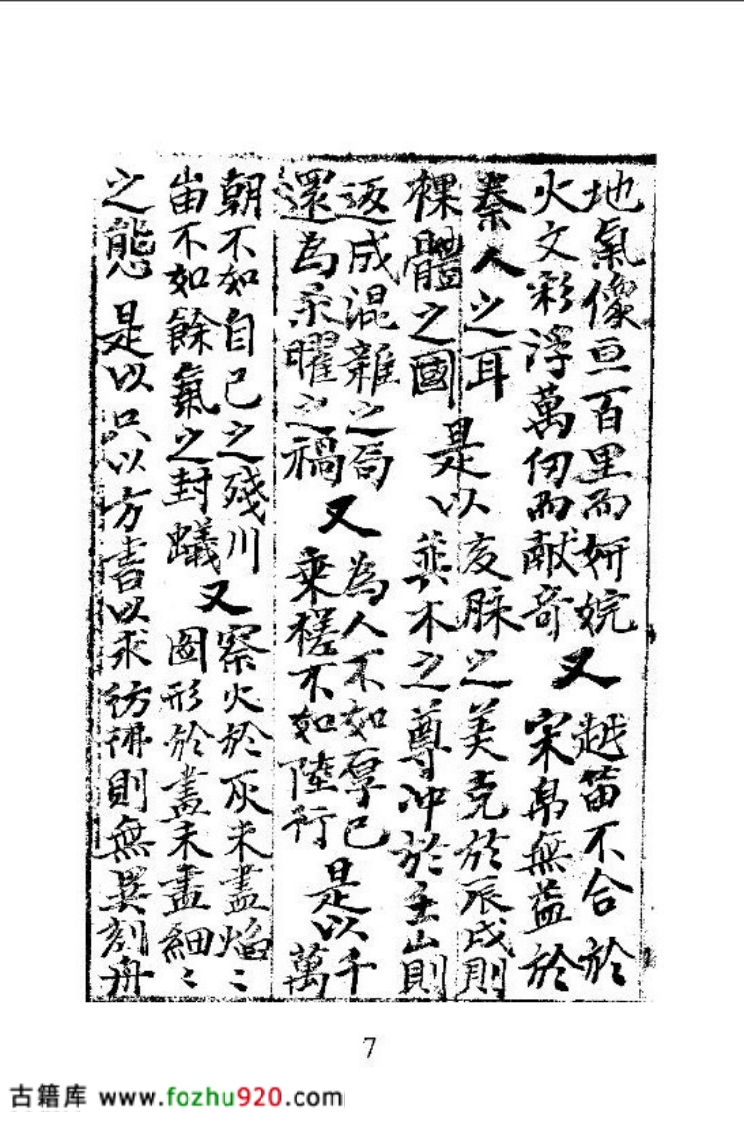 地氣像亘百里而妍婉 又 越笛不合於
火文彩浮萬仞而献奇 宋帛無益於
秦人之耳 是以 亥脉之美克於辰戌則
裸體之國 巽木之尊冲於圭山則
返成混雜之局 又 為人不如厚己 是以 千
還為禾曜之禍 乘槎不如陸行 萬
朝不如自己之殘川 又 察火於灰未盡焰〻
峀不如餘氣之封蟻 圖形於畫未盡細〻
之態 是以只以方書以求彷彿則無異刻舟
7
古籍库 www.fozhu920.com